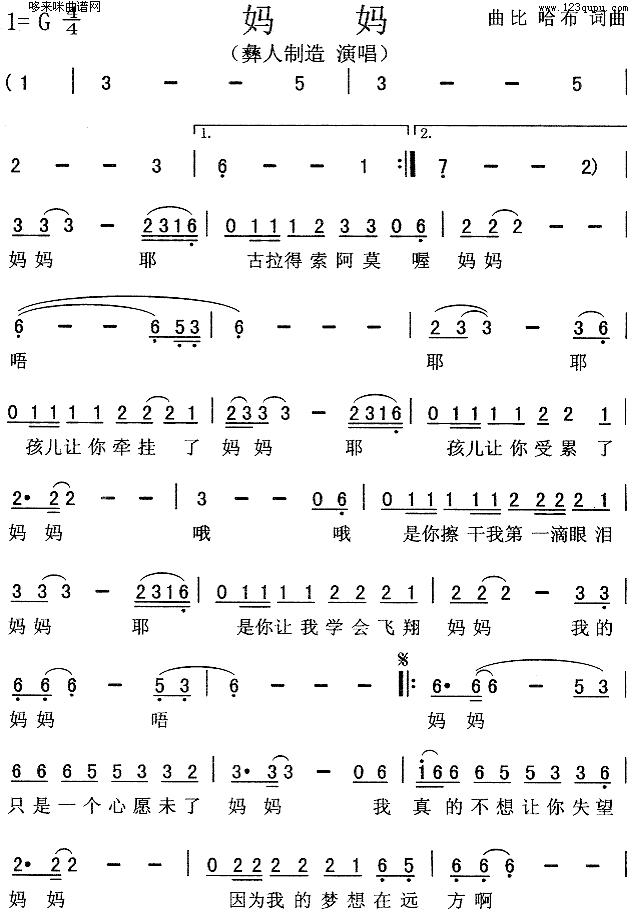 哆来咪曲谱网
www.123qupu.com
1= G 4/4
妈 妈
曲比 哈布 词曲
（彝人制造 演唱）
( 1 | 3 － － 5 | 3 － － 5 |
2 － － 3 | 1. 6 － － 1 :‖ 2. 7 － － 2) |
3 3 3 － 2316 | 0 11 1 2 3 3 0 6 | 2 2 2 － － |
妈妈 耶 古拉得索阿莫 喔 妈妈
6 － － 6 53 | 6 － － － | 2 3 3 － 3 6 |
唔 耶 耶
0 11 1 1 2 2 2 1 | 23 3 3 － 2316 | 0 11 1 1 2 2 1 |
孩儿让你牵挂 了 妈妈 耶 孩儿让你受累了
2• 2 2 － － | 3 － － 0 6 | 0 11 1 1 2 22 2 1 |
妈妈 哦 哦 是你擦干我第一滴眼泪
3 3 3 － 2316 | 0 11 1 1 2 2 2 1 | 2 2 2 － 3 3 |
妈妈 耶 是你让我学会飞翔 妈妈 我的
6 6 6 － 5 3 | 6 － － － ‖: 6• 6 6 － 5 3 |
妈妈 唔 妈妈
6 6 6 5 5 3 3 2 | 3• 3 3 － 0 6 | i6 6 6 5 5 3 3 6 |
只是一个心愿未了 妈妈 我 真的不想让你失望
2• 2 2 － － | 0 22 2 2 2 1 6 5 | 6 6 6 － － |
妈妈 因为我的梦想在远 方啊